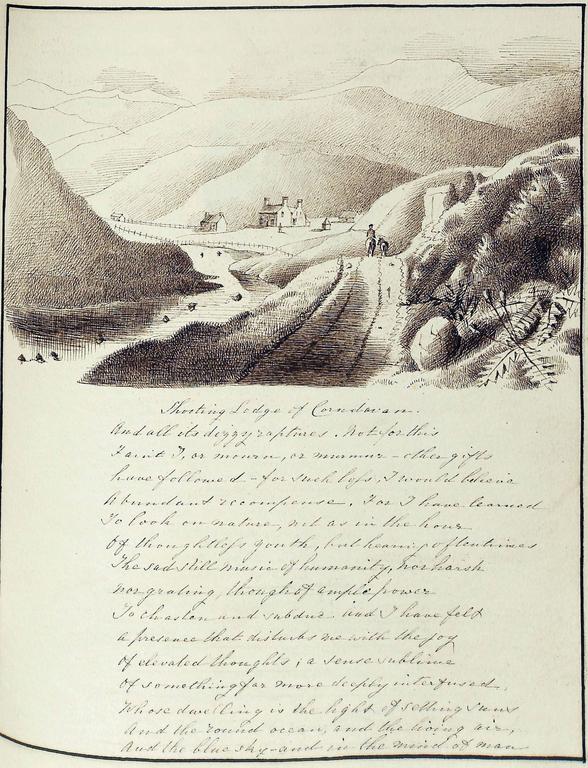 Shooting Lodge of Corndavan.
And all its dizzy raptures. Not for this
Faint I, or mourn, or murmur - other gifts
have followed - for such loss, I would believe
Abundant recompense. For I have learned
To look on nature, not as in the hour
Of thoughtless youth, but hearing oftentimes
The sad still music of humanity, nor harsh
nor grating, though of ample power
To chasten and subdue and I have felt
a presence that disturbs me with the joy
Of elevated thoughts; a sense sublime
Of something far more deeply interfused,
Whose dwelling is the light of setting suns
And the round ocean, and the living air,
And the blue sky - and in the mind of man